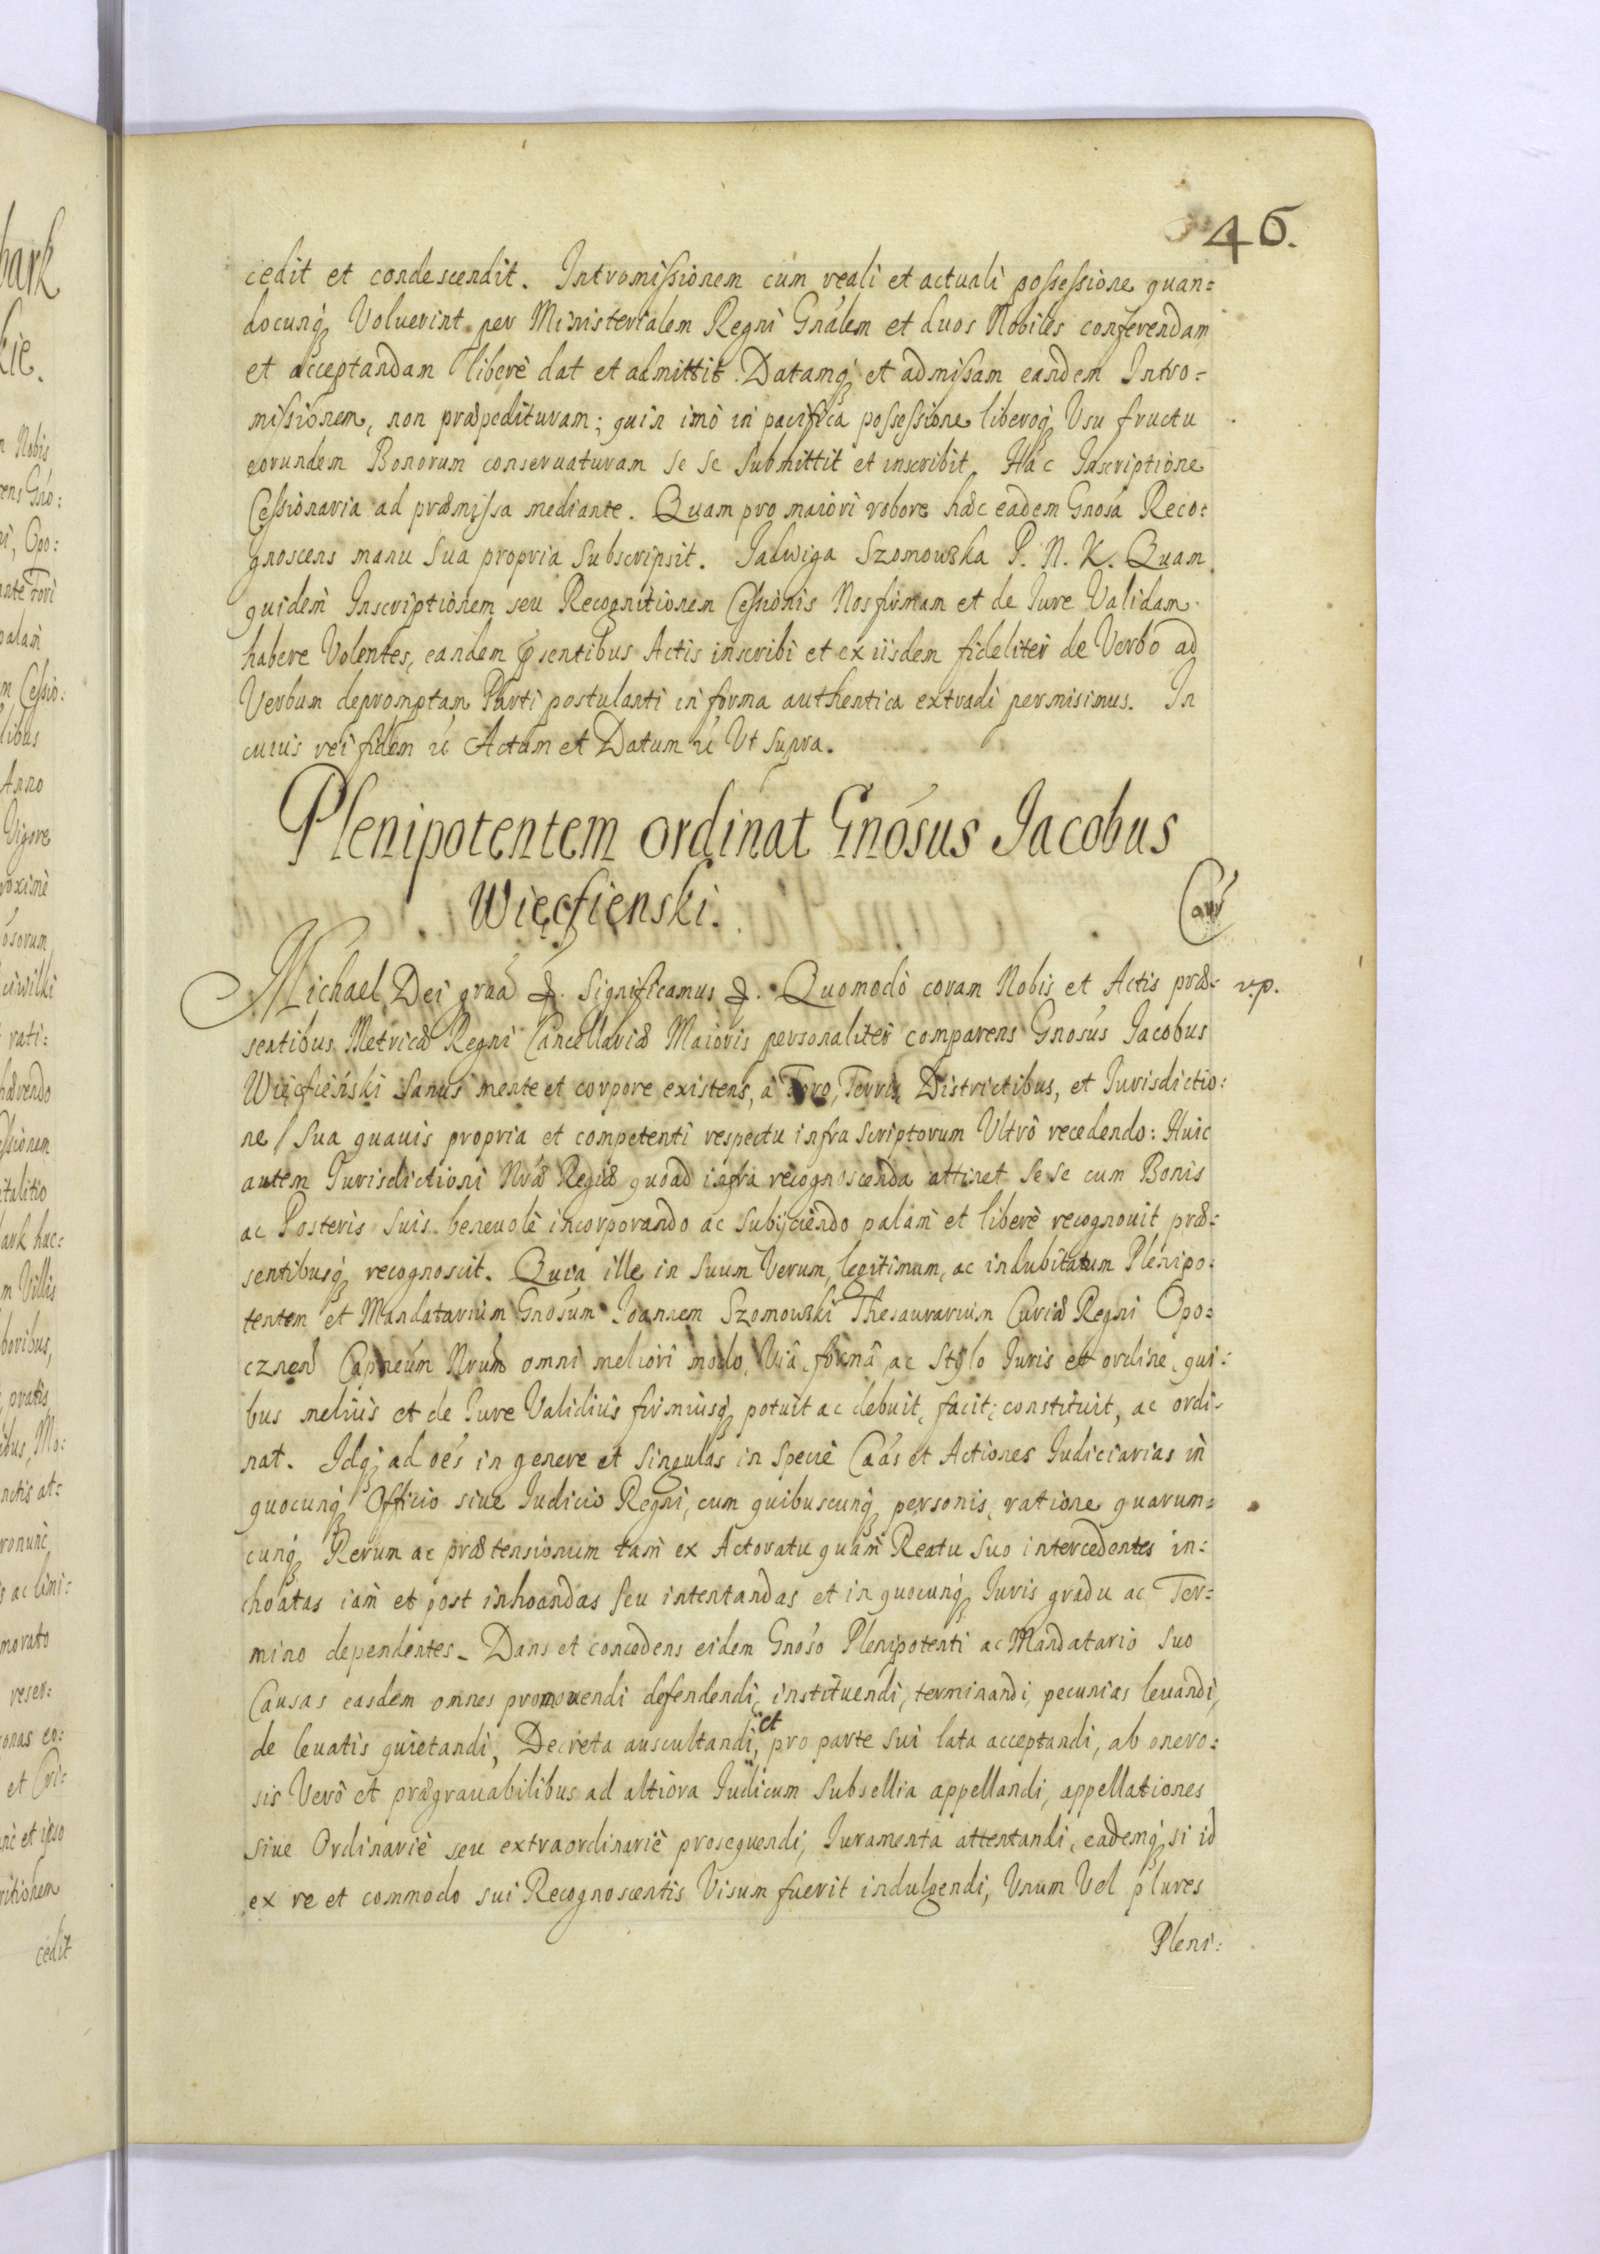 46.
cedit et condescendit. Intromissionem cum reali et actuali possessione quan=
docunq₃ Voluerint per Ministerialem Regni Gnálem et duos Nobiles conferendam
et acceptandam liberè dat et admittit. Datamq₃ et admissam eandem Intro=
missionem, non præpedituram; quin imò in pacifica possessione liberoq₃ Usu fructu
eorundem Bonorum conseruaturam se se submittit et inscribit. Hac Inscriptione
Cessionaria ad præmissa mediante. Quam pro maiori robore hæc eadem Gnosá Reco:
gnoscens manu sua propria subscripsit. Jadwiga Szomowska P. N. K. Quam
quidem Inscriptionem seu Recognitionem Cessionis Nos firmam et de Iure Validam
habere Volentes, eandem pꝛsentibus Actis inscribi et ex iisdem fideliter de Verbo ad
Verbum depromptam Parti postulanti in forma authentica extradi permisimus. In
cuius rei fidem &c Actum et Datum &c Ut supra.
Plenipotentem ordinat Gnósus Jacobus
Więcfienski.
Michael Dei graá &. Significamus &. Quomodò coram Nobis et Actis præ= v.p.
sentibus Metricæ Regni Cancellariæ Maioris personaliter comparens Gnosús Jacobus
Więcfieński sanus mente et corpore existens, à Foro, Terris Districtibus, et Jurisdictio:
ne sua quauis propria et competenti respectu infra scriptorum Ultrò recedendo: Huic
autem Jurisdictioni Nrǽ Regiæ quoad infra recognoscenda attinet se se cum Bonis
ac Posteris suis beneuolè incorporando ac subijciendo palám et liberè recognouit præ=
sentibusq₃ recognoscit. Quia ille in suum Verum, legitimum, ac indubitatum Plenipo:
tentem et Mandatarium Gnósum Joannem Szomowski Thesaurarium Curiæ Regni Opo:
cznen Capneúm Nrúm omni meliori modo, Viâ, formâ, ac stylo Juris et ordine, qui:
bus melius et de Jure Validius firmiusq₃ potuit ac debuit, facit, constituit, ac ordi-
nat. Idq₃ ad oés in genere et singulas in specie Caás et Actiones Judiciarias in
quocunq₃ Officio siue Judicio Regni, cum quibuscunq₃ personis, ratione quarum=
cunq₃ Rerum ac prætensionum tam ex Actoratu quàm Reatu suo intercedentes in=
choatas iam et post inhoandas seu intentandas et in quocunq₃ Juris gradu ac Ter=
mino dependentes. Dans et concedens eidem Gnóso Plenipotenti ac Mandatario suo
Causas easdem omnes promouendi defendendi, instituendi, terminandi, pecunias leuandi,
de leuatis quietandi, Decreta auscultandi, et pro parte sui lata acceptandi, ab onero:
sis Verò et prægrauabilibus ad altiora Judicum subsellia appellandi, appellationes
siue Ordinariè seu extraordinariè prosequendi, Juramenta attentandi, eademq₃ si id
ex re et commodo sui Recognoscentis Visum fuerit indulgendi, Unum Vel plures
Pleni: